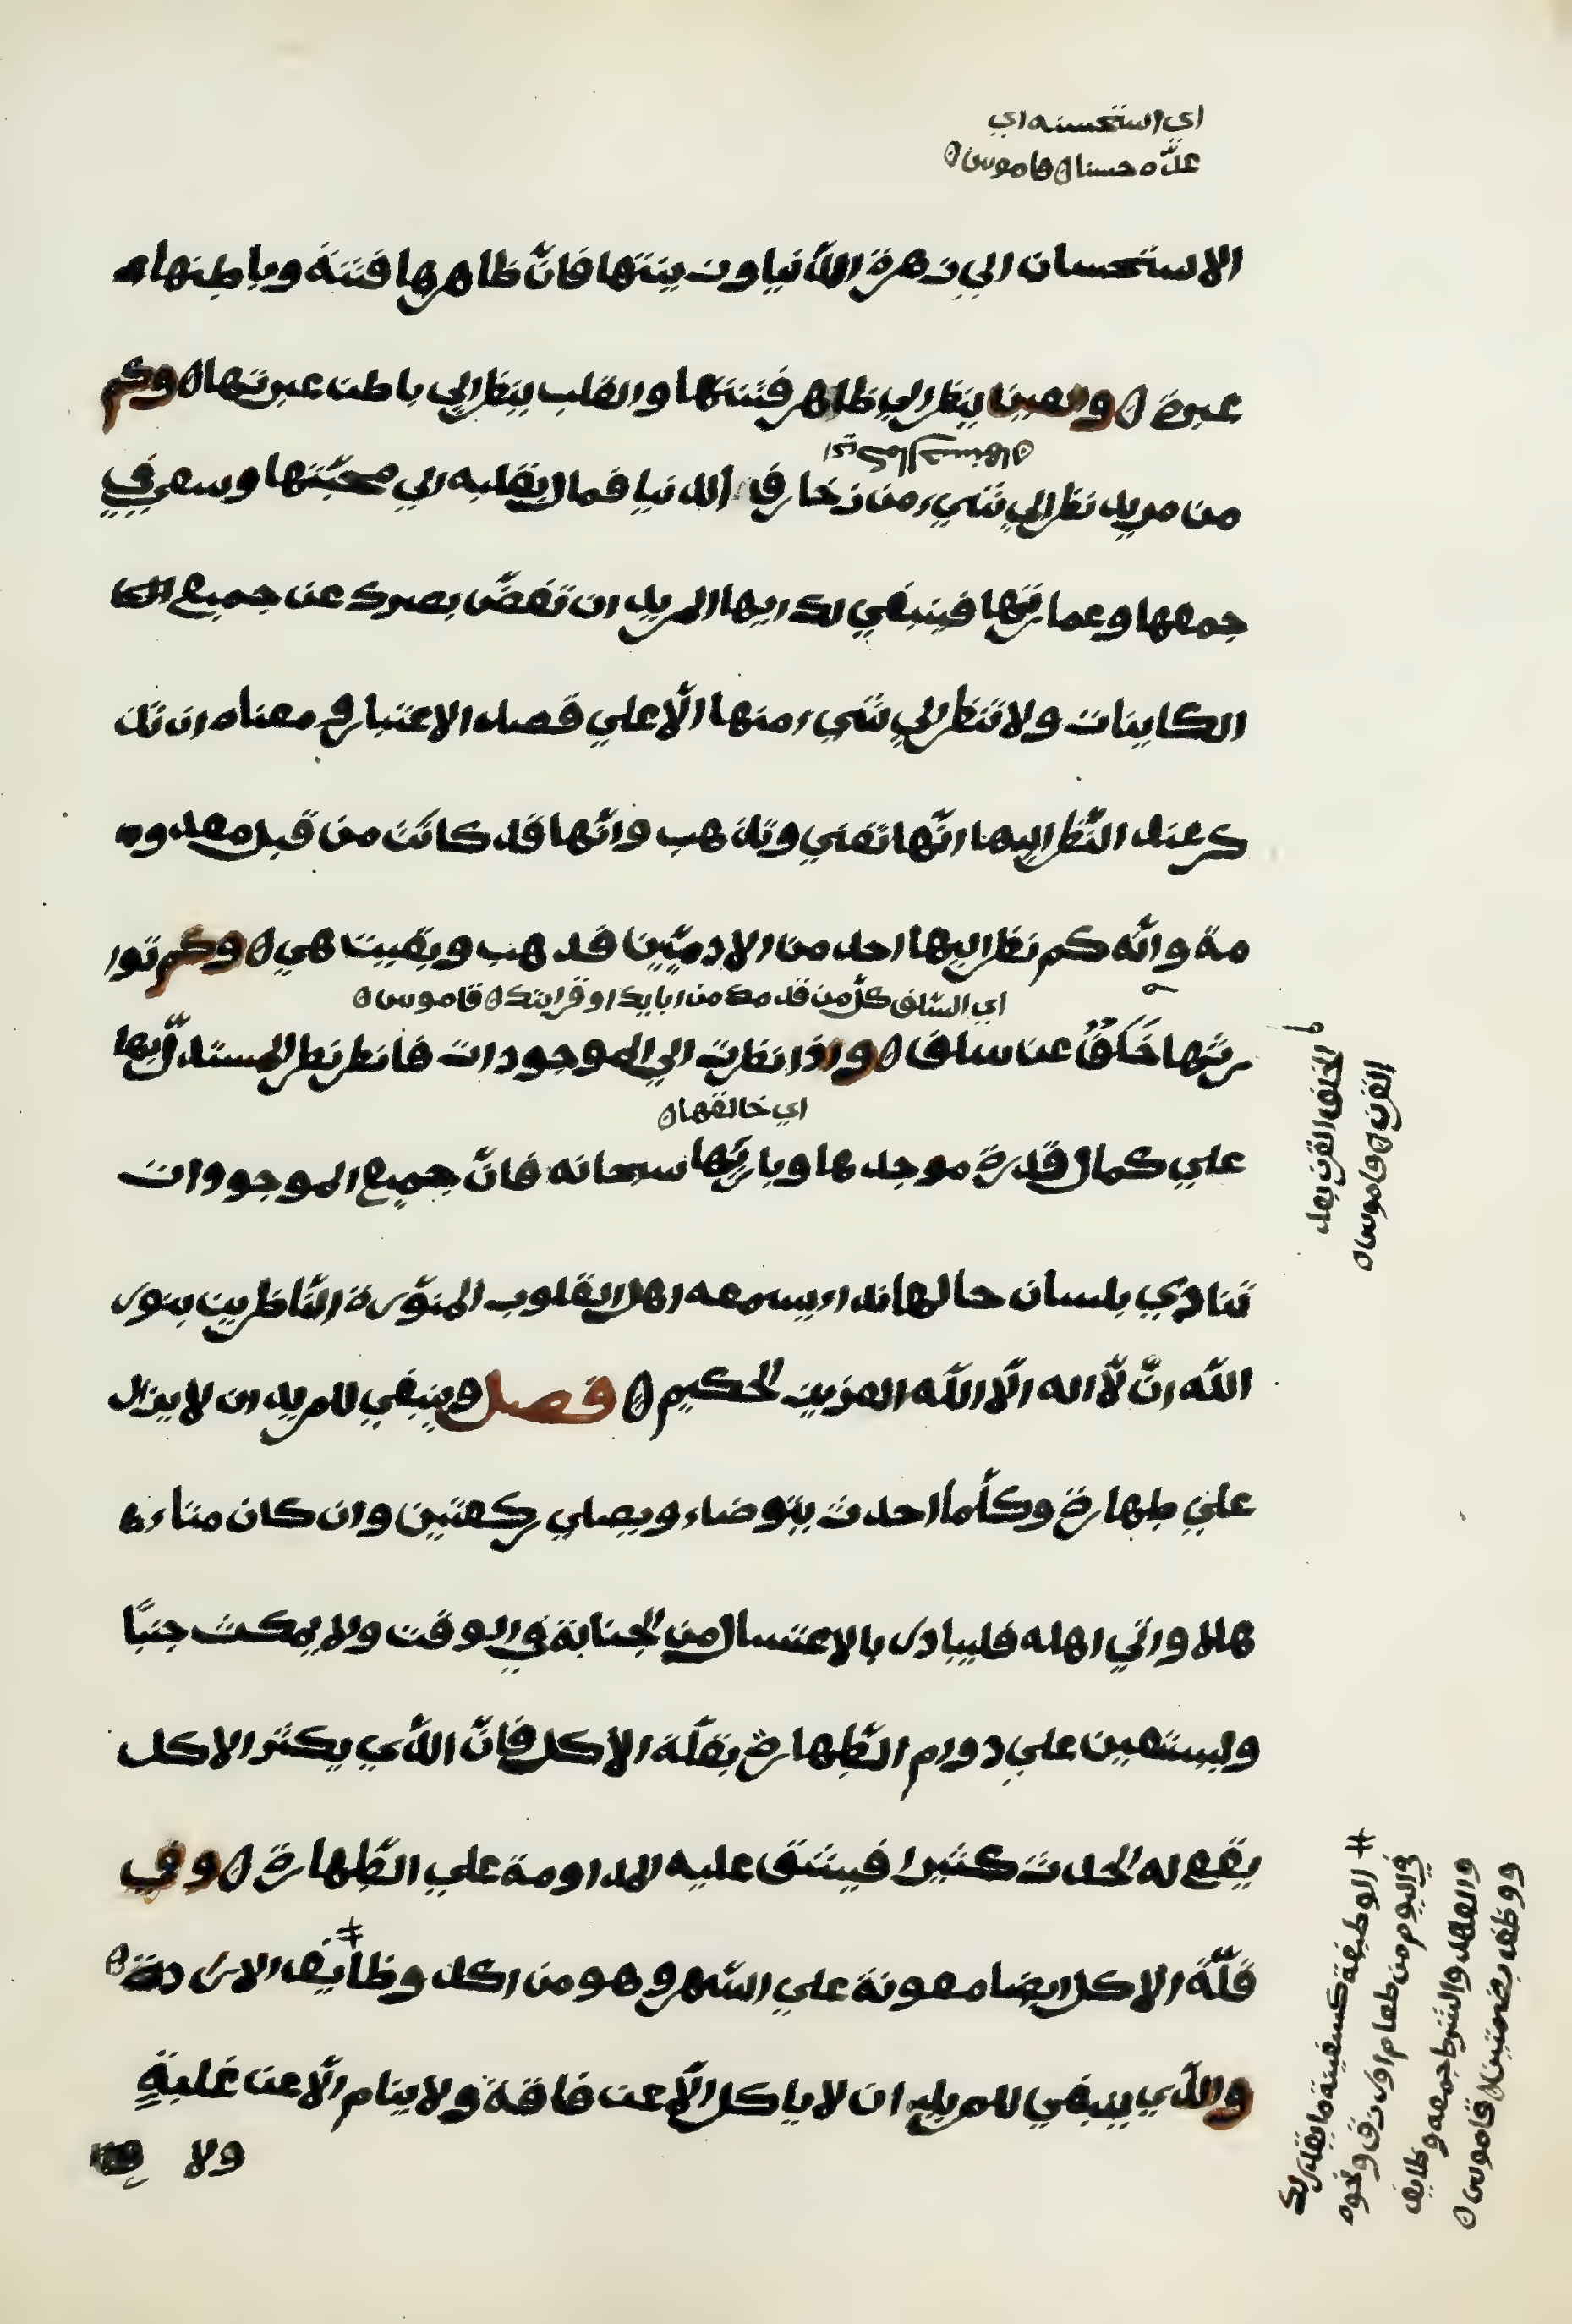 اي استحسنه اي
عدّه حسنا ٥ قاموس ٥
الاستحسان الي زهرة الدّنيا وزينتها فانّ ظاهرها فتنة وباطنها
عبرة ٥ والعين ينظر الي ظاهر فتنتها والقلب ينظر الي باطن عبرتها ٥ وكم
من مريد نظر الي شيء من زخارف الدنيا فمال بقلبه الي محبّتها وسعي في
جمعها وعمارتها فينبغي لك ايها المريد ان تغضّ بصرك عن جميع
الكاينات ولا تنظر الي شيء منها الّا علي قصد الاعتبار ومعناه ان تذ
كر عند النّظر اليها انّها تفني وتذهب وانّها قد كانت من قبل معدو
مة وانّه كم نظر اليها احد من الادميّين فذهب وبقيت هي ٥ وكم توا
اي السّلف كلّ من قدمك من ابايك او قرابتك ٥ قاموس ٥
رثها خَلَفٌ عن سلف ٥ واذا نظرت الي الموجودات فانظر نظر المستدلّ بها
الخلف القرن بعد
القرن ٥ قاموس ٥
اي خالقها ٥
علي كمال قدرة موجدها وباريّها سبحانه فانّ جميع الموجودات
تنادي بلسان حالها نداء يسمعه اهل القلوب المنوّرة النّاظرين بنور
اللّه انّ لّا اله الّا اللّه العزيز الحكيم ٥ فصل وينبغي للمريد ان لا يزال
علي طهارة وكلّما احدث يتوضاء ويصلي ركعتين وان كان متاء
هلا واتي اهله فليبادر بالاغتسال من الجنابة في الوقت ولا يمكث جنبًا
وليستعين علي دوام الطّهارة بقلّة الاكل فانّ الذّي يكثر الاكل
يقع له الحدث كثيرا فيشق عليه المداومة علي الطّهارة ٥ وفي
قلّة الاكل ايضا معونة علي السّهر وهو من اكد وظايف الارادة ٥
# الوظيفة كسفينة ما يقدر لك
في اليوم من طعام او رزق ونحوه
والعهد والشرط جمعه وظايف
ووظف بضمتين ٥ قاموس ٥
والذّي ينبغي للمريد ان لا ياكل الّا عن فاقة ولا ينام الّا عن غلبةٍ
ولا